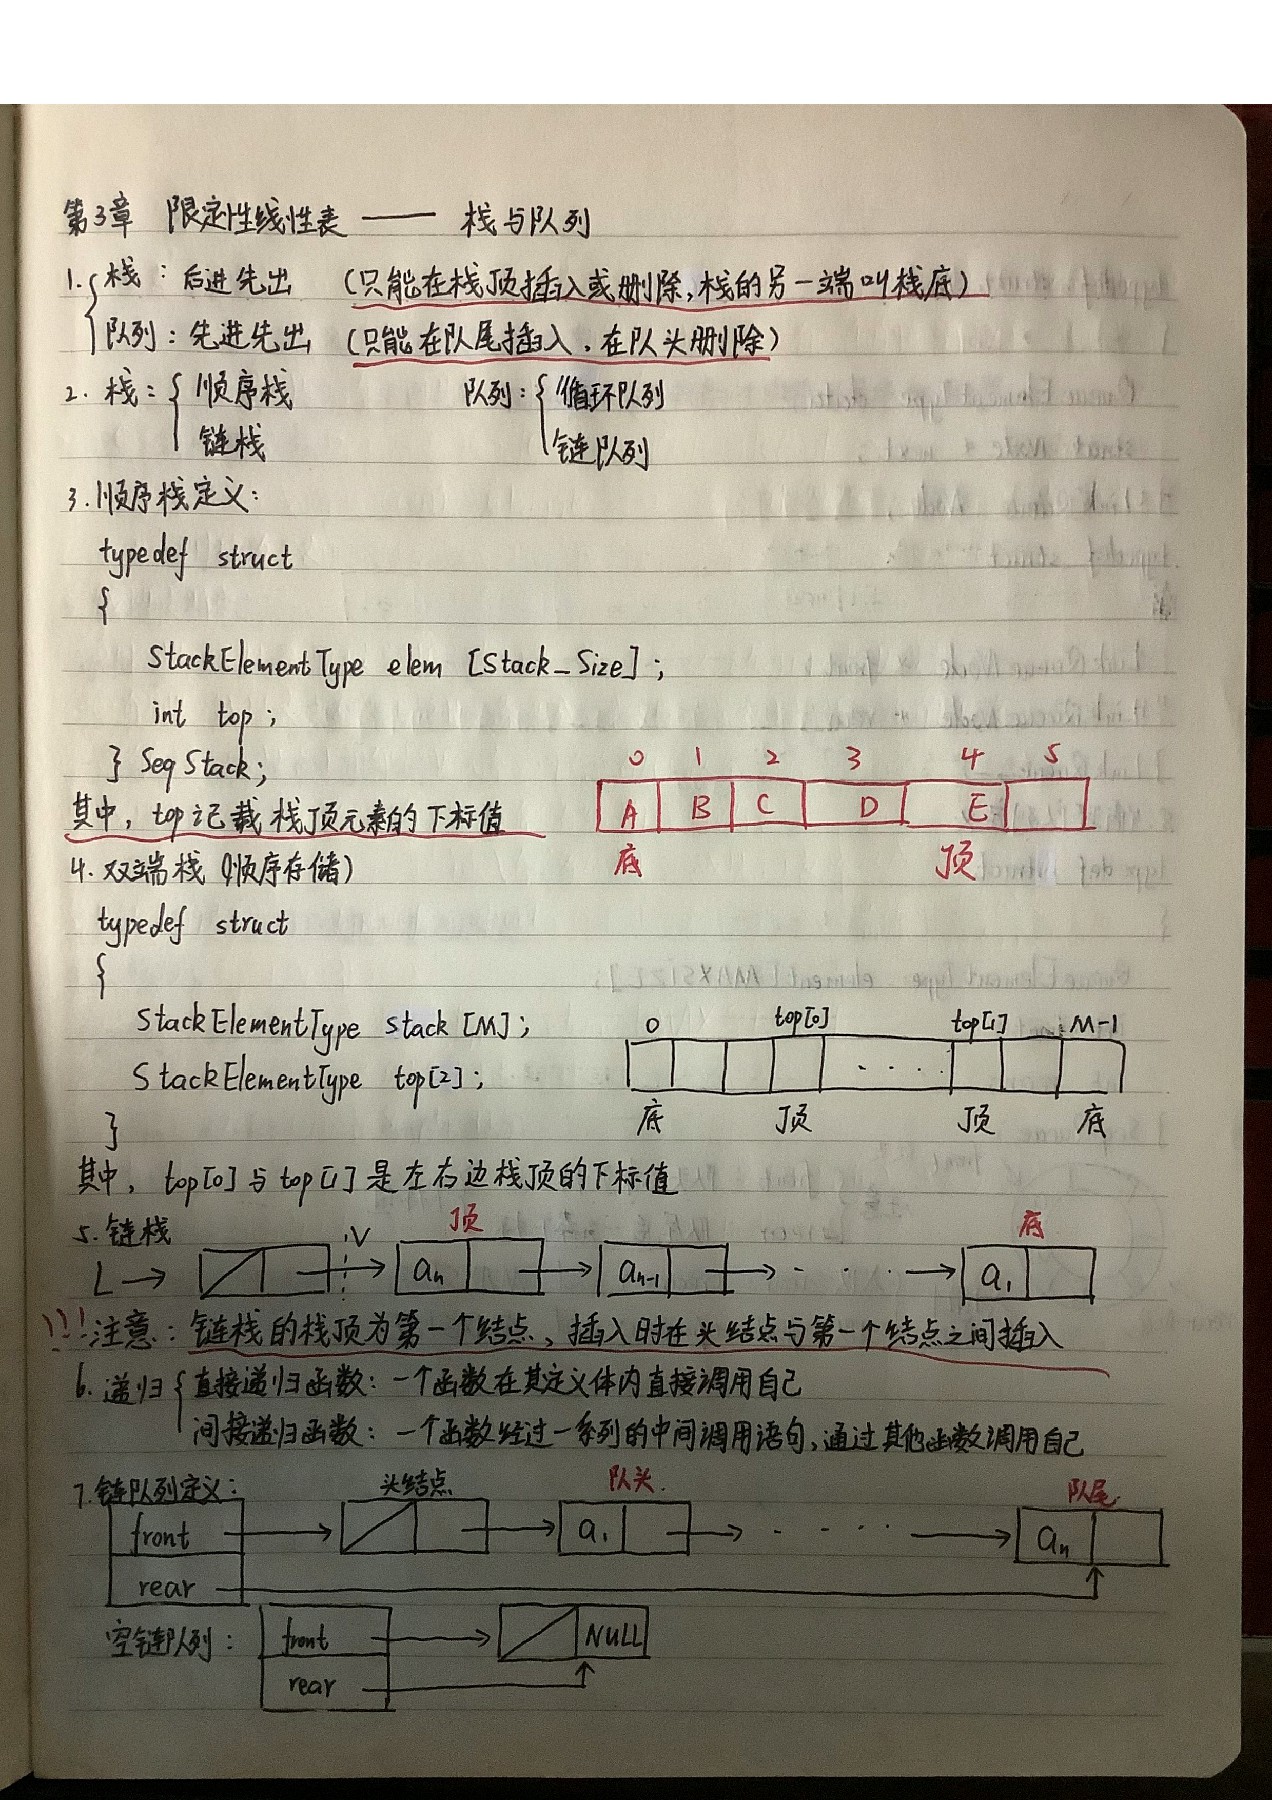 第3章 限定性线性表 —— 栈与队列
1. { 栈：后进先出 （只能在栈顶插入或删除，栈的另一端叫栈底）
队列：先进先出 （只能在队尾插入，在队头删除）
2. 栈：{ 顺序栈 队列：{ 循环队列
链栈 链队列
3. 顺序栈定义：
typedef struct
{
StackElementType elem [Stack_Size];
int top;
} SeqStack;
0 1 2 3 4 5
其中，top记载栈顶元素的下标值
A B C D E
底 顶
4. 双端栈（顺序存储）
typedef struct
{
StackElementType stack [M];
0 top[0] top[1] M-1
StackElementType top[2];
底 顶 顶 底
}
其中，top[0]与top[1]是左右边栈顶的下标值
5. 链栈
V 顶 底
L → an → an-1 → · · · · → a1
!!! 注意：链栈的栈顶为第一个结点，插入时在头结点与第一个结点之间插入
6. 递归 { 直接递归函数：一个函数在其定义体内直接调用自己
间接递归函数：一个函数经过一系列的中间调用语句，通过其他函数调用自己
7. 链队列定义： 头结点 队头 队尾
front a1 · · · · · an
rear
空链队列： front NULL
rear